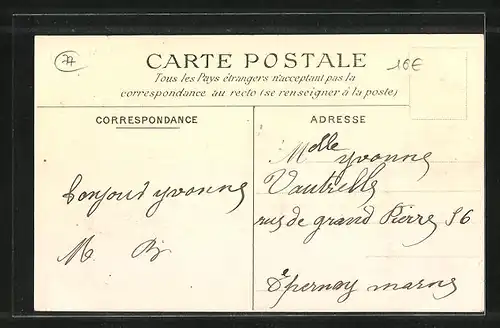 77
CARTE POSTALE
16€
Tous les Pays étrangers n'acceptant pas la
correspondance au recto (se renseigner à la poste)
CORRESPONDANCE
bonjour yvonne
M. B
ADRESSE
Melle yvonne
Vautrelle
rue de grand Pierre 56
Épernay marne